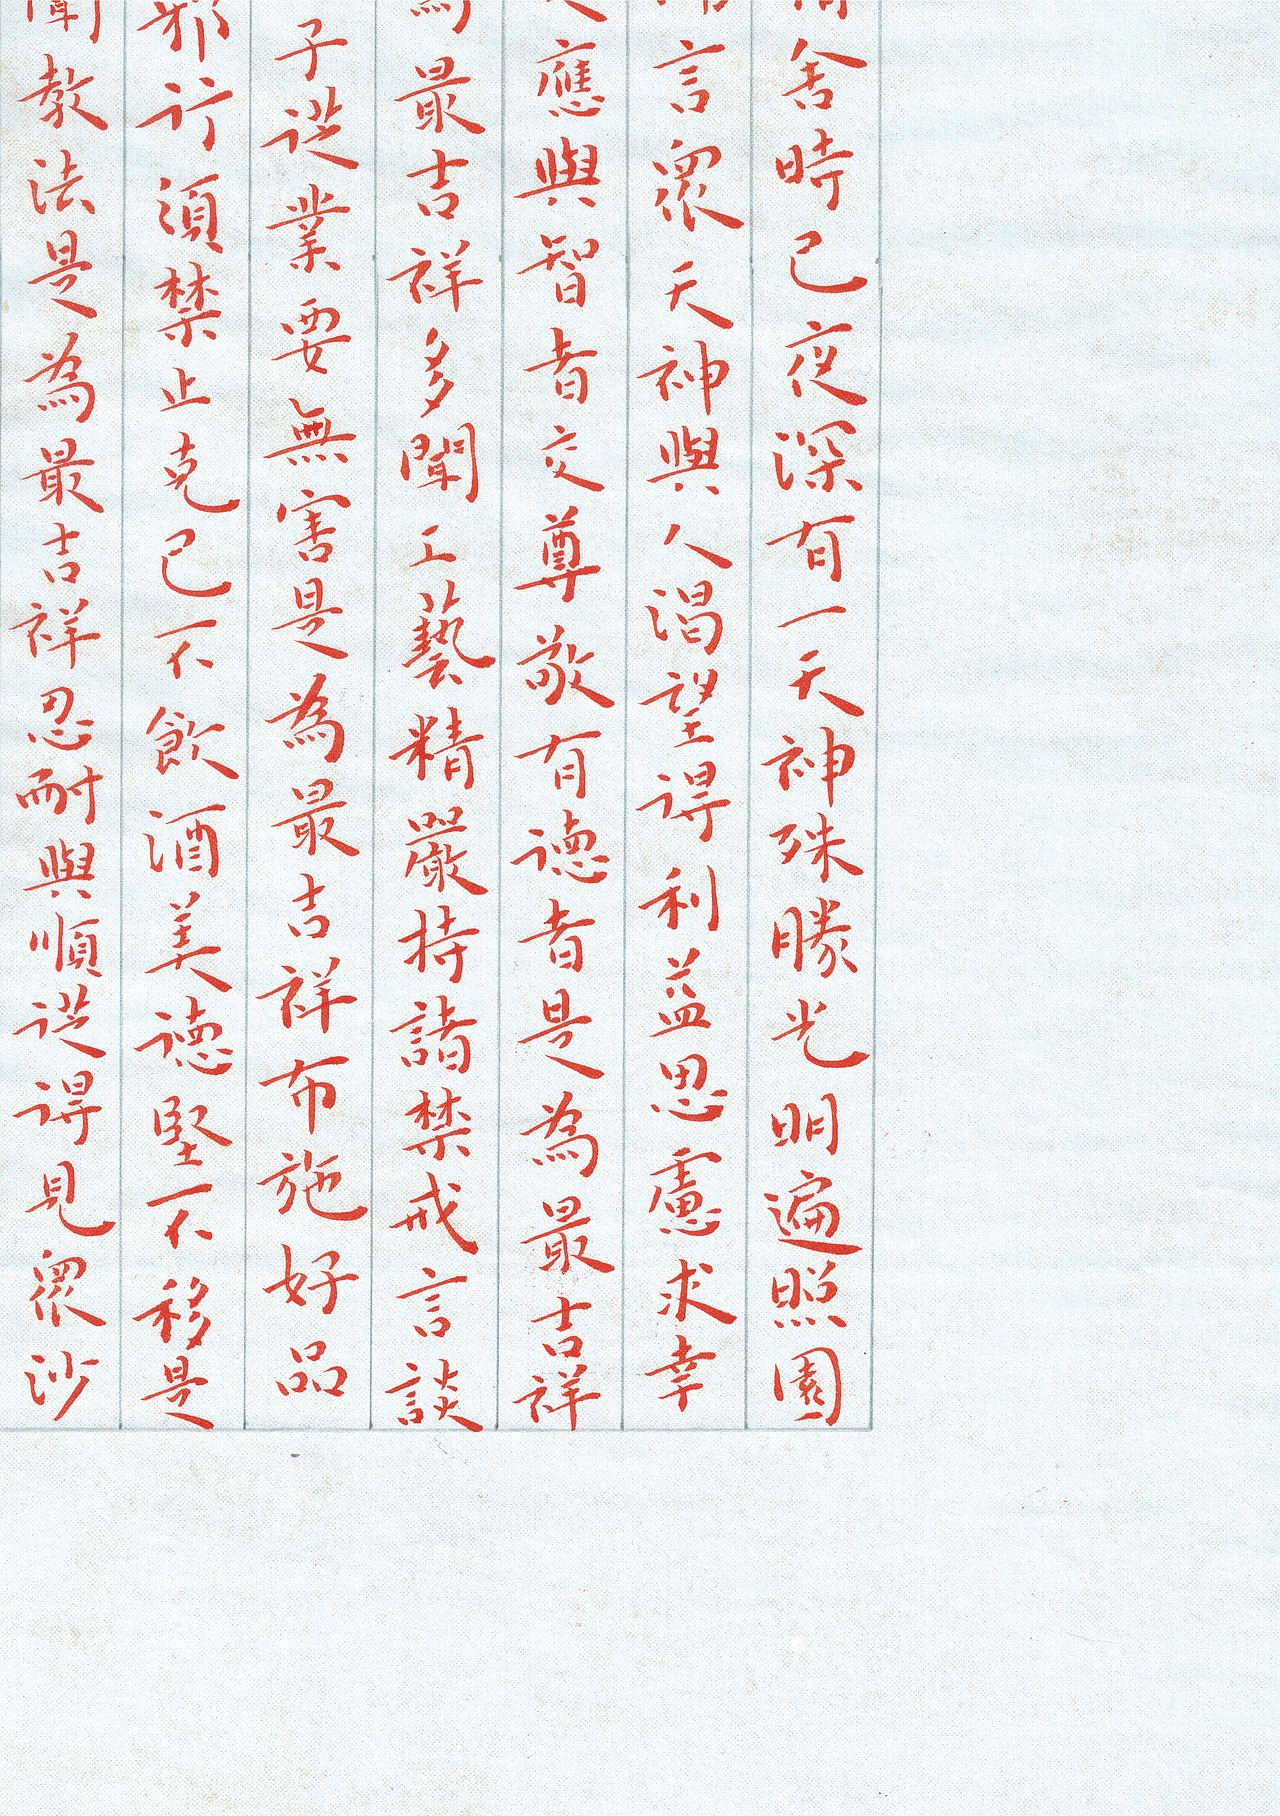 舍時已夜深有一天神殊勝光明遍照園
言眾天神與人渴望得利益思慮求幸
應與智者交尊敬有德者是為最吉祥
為最吉祥多聞工藝精嚴持諸禁戒言談
子從業要無害是為最吉祥布施好品
邪行須禁止克已不飲酒美德堅不移是
聞教法是為最吉祥忍耐與順從得見眾沙